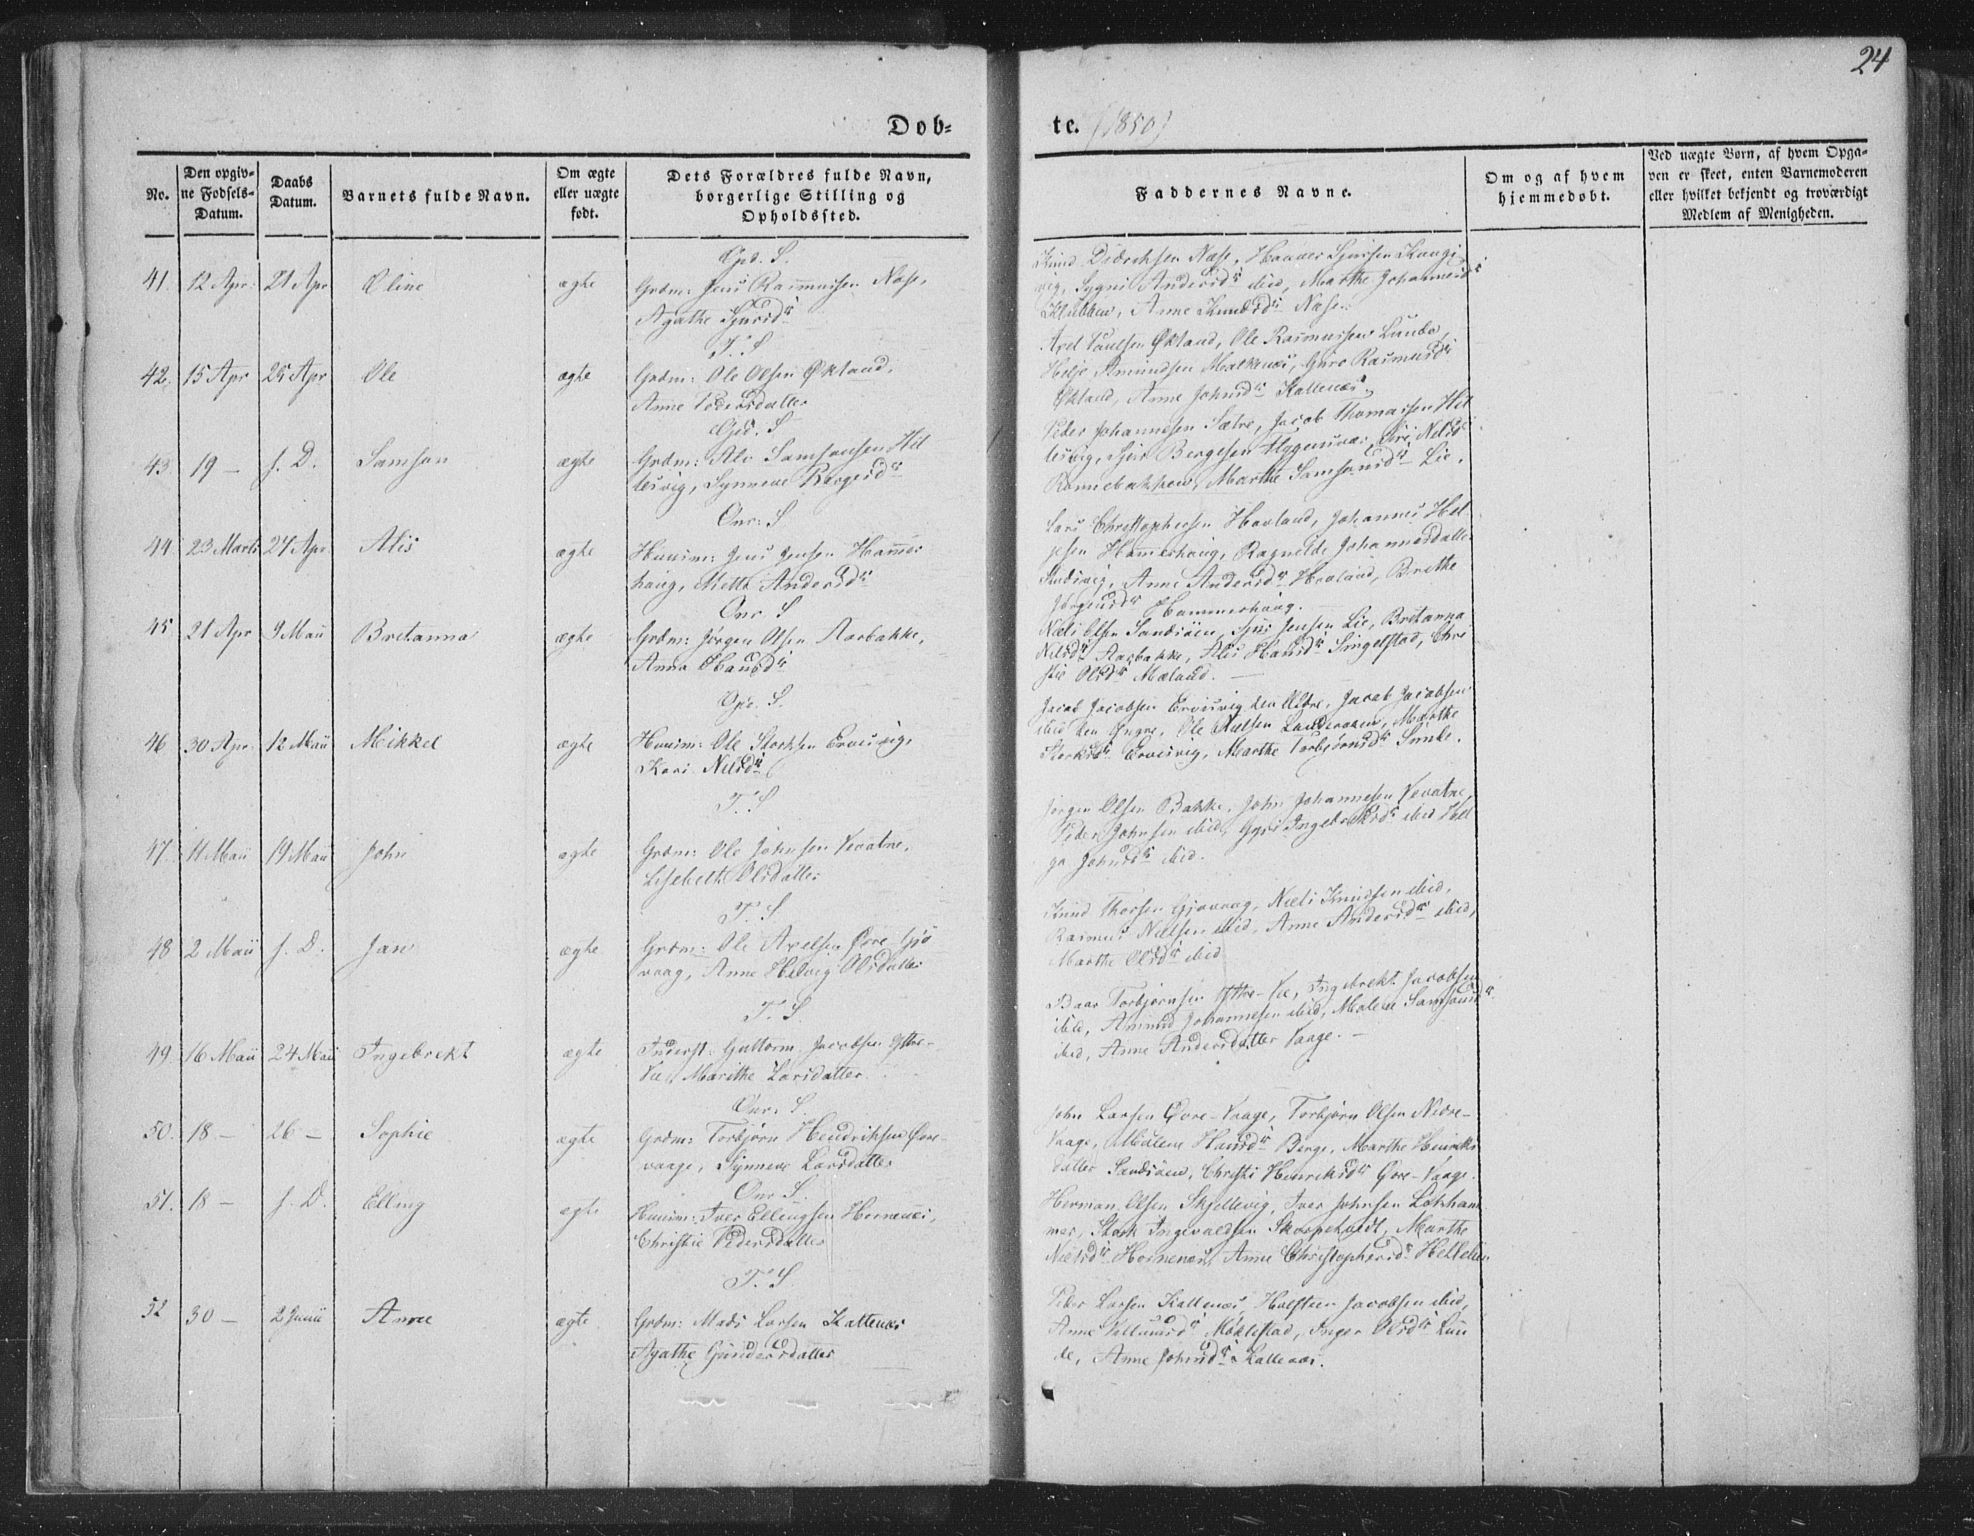 24
Døb-
te. (1850)
No.
Den opgiv-
ne Fødsels-
Datum.
Daabs
Datum.
Barnets fulde Navn.
Om ægte
eller uægte
født.
Dets Forældres fulde Navn,
borgerlige Stilling og
Opholdssted.
Faddernes Navne.
Om og af hvem
hjemmedøbt.
Ved uægte Børn, af hvem Opga-
ven er skeet, enten Barnemoderen
eller hvilket bekjendt og troværdigt
Medlem af Menigheden.
41. 12 Apr: 21 Apr Oline ægte
Grdm: Jens Rasmussen Næse,
Agathe Sjursdr
Knud Didriksen Næse, Haaver Sjursen
Andersdr ibid, Marthe Johannesdr
Klubben, Anne Knudsdr Næse.
T. S
42. 15 Apr 25 Apr Ole ægte
Grdm: Ole Olsen Økland,
Anne Pedersdatter
Axel Paulsen Økland, Ole Rasmussen Lunde,
Amundsen Malkenes, Guro Rasmusdr
Økland, Anne Johnsdr Kallenæs.
43. 19 - s. D. Samson ægte
Grdm: Ole Samsonsen Hil
lesvig, Synneve Børgesdr
Peder Johannesen Sætre, Jacob Thomassen Hil
lesvig, Sjur Børgesen Siri Nilsdr
Rønnebakken, Marthe Samsonsdr Lie.
Ovr: S
44 23 Marts 24 Apr Alis ægte
Huusm: Jens Jensen Hammer
haug, Mette Andersdr
Lars Christophersen Havland, Johannes Hel
gesen Hammerhaug, Ragnilde Johannesdatter
Sandvig, Anne Andersdr Havland, Brethe
Jørgensdr Hammerhaug.
Ovr S
45 21 Apr 9 Maii Bretanna ægte
Grdm: Jørgen Olsen Aarbakke,
Anna
Niels Olsen Sandsøen, Sjur Jensen Lie, Bretanna
Nilsdr Aarbakke, Alis Hansdr Singelstad, Chri
stie Olsdr Mæland. -
46 30 Apr. 12 Maii Mikkel ægte
Huusm: Ole Storksen Ervesvig,
Kari Nilsdr
Jacob Jacobsen Ervesvig den Eldre, Jacob Jacobsen
ibid den Yngre, Ole Nielsen Landeraaen, Marthe
Storksdr Ervesvig, Marthe Torbjørnsdr Sunde.
T. S
47. 11 Maii 19 Maii John ægte
Grdm: Ole Johnsen Vevatne,
Lisebeth Olsdatter
Jørgen Olsen Bakke, John Johannesen Vevatne,
Peder Johnsen ibid, Gyri Ingebrektsdr ibid Hel
ga Johnsdr ibid.
T. S
48 2 Maii s. D. Jan ægte
Grdm: Ole Axelsen Øvre Gjø
vaag, Anne Helvig Olsdatter
Knud Thorsen Gjøvaag, Niels Knudsen ibid,
Rasmus Nielsen ibid, Anne Andersdr ibid,
Marthe Olsdr ibid
T. S.
49. 16 Maii 24 Maii Ingebrekt ægte
Inderst: Guttorm Jacobsen Yttre-
Væ, Marithe Larsdatter
Baar Torbjørnsen Yttre-Væ, Ingebrekt Jacobsen
ibid, Amund Johannesen ibid, Malene Samsonsdr
ibid, Anne Andersdatter Vaage. -
Ovr. S.
50. 18 - 26 - Sophie ægte
Grdm: Torbjørn Hendriksen Øvre-
vaage, Synneve Larsdatter
John Larsen Øvre-Vaage, Torbjørn Olsen Nedre-
Vaage, Malene Hansdr Berge, Marthe Henriks
datter Sandsøen, Christi Henriksdr Øvre-Vaage.
Ovr S.
51. 18 - s. D. Elling ægte
Huusm: Iver Ellingsen Hornenæs,
Christie Pedersdatter
Herman Olsen Skjellevig, Iver Johnsen Løkham
mer, Stork Ingevaldsen Marthe
Nielsdr Hornenæs, Anne Christophersdr
T. S
52 30 - 2 Junii Anne ægte
Grdm: Mads Larsen Kallenæs
Agathe Gundersdatter
Peder Larsen Kallenæs, Halsteen Jacobsen ibid,
Anne Møklestad, Inger Olsdr Lun
de, Anne Johnsdr Kallenæs.